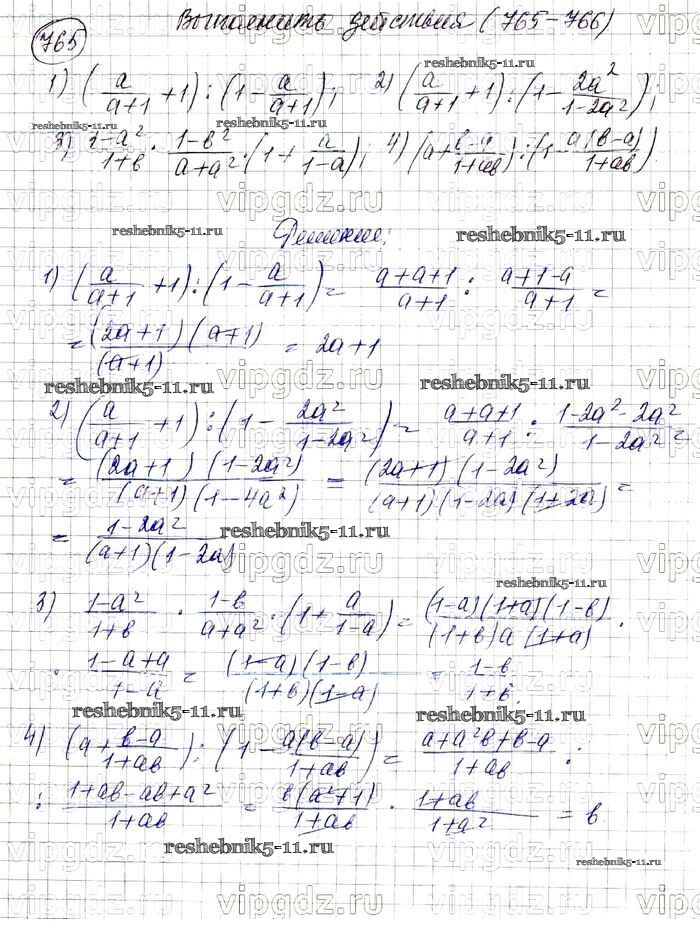 Выполнить действия (765-766)
765
1) (a/(a+1) + 1) : (1 - a/(a+1)); 2) (a/(a+1) + 1) : (1 - 2a²/(1-2a²));
reshebnik5-11.ru
reshebnik5-11.ru reshebnik5-11.ru
3) (1-a²)/(1+b) · (1-b²)/(a+a²) · (1 + a/(1-a)); 4) (a + (b-a)/(1+ab)) : (1 - a(b-a)/(1+ab))
vipgdz.ru
reshebnik5-11.ru Решение. reshebnik5-11.ru
1) (a/(a+1) + 1) : (1 - a/(a+1)) = (a+a+1)/(a+1) : (a+1-a)/(a+1) =
= (2a+1)(a+1)/(a+1) = 2a+1
reshebnik5-11.ru vipgdz.ru reshebnik5-11.ru
2) (a/(a+1) + 1) : (1 - 2a²/(1-2a²)) = (a+a+1)/(a+1) : (1-2a²-2a²)/(1-2a²) =
= (2a+1)(1-2a²)/((a+1)(1-4a²)) = (2a+1)(1-2a²)/((a+1)(1-2a)(1+2a)) =
= (1-2a²)/((a+1)(1-2a)) reshebnik5-11.ru
vipgdz.ru
reshebnik5-11.ru
3) (1-a²)/(1+b) · (1-b)/(a+a²) · (1 + a/(1-a)) = (1-a)(1+a)(1-b)/((1+b)a(1+a)) ·
· (1-a+a)/(1-a) = (1-a)(1-b)/((1+b)(1-a)) = (1-b)/(1+b)
reshebnik5-11.ru reshebnik5-11.ru
4) (a + (b-a)/(1+ab)) : (1 - a(b-a)/(1+ab)) = (a+a²b+b-a)/(1+ab) :
: (1+ab-ab+a²)/(1+ab) = b(a²+1)/(1+ab) · (1+ab)/(1+a²) = b
reshebnik5-11.ru reshebnik5-11.ru
vipgdz.ru